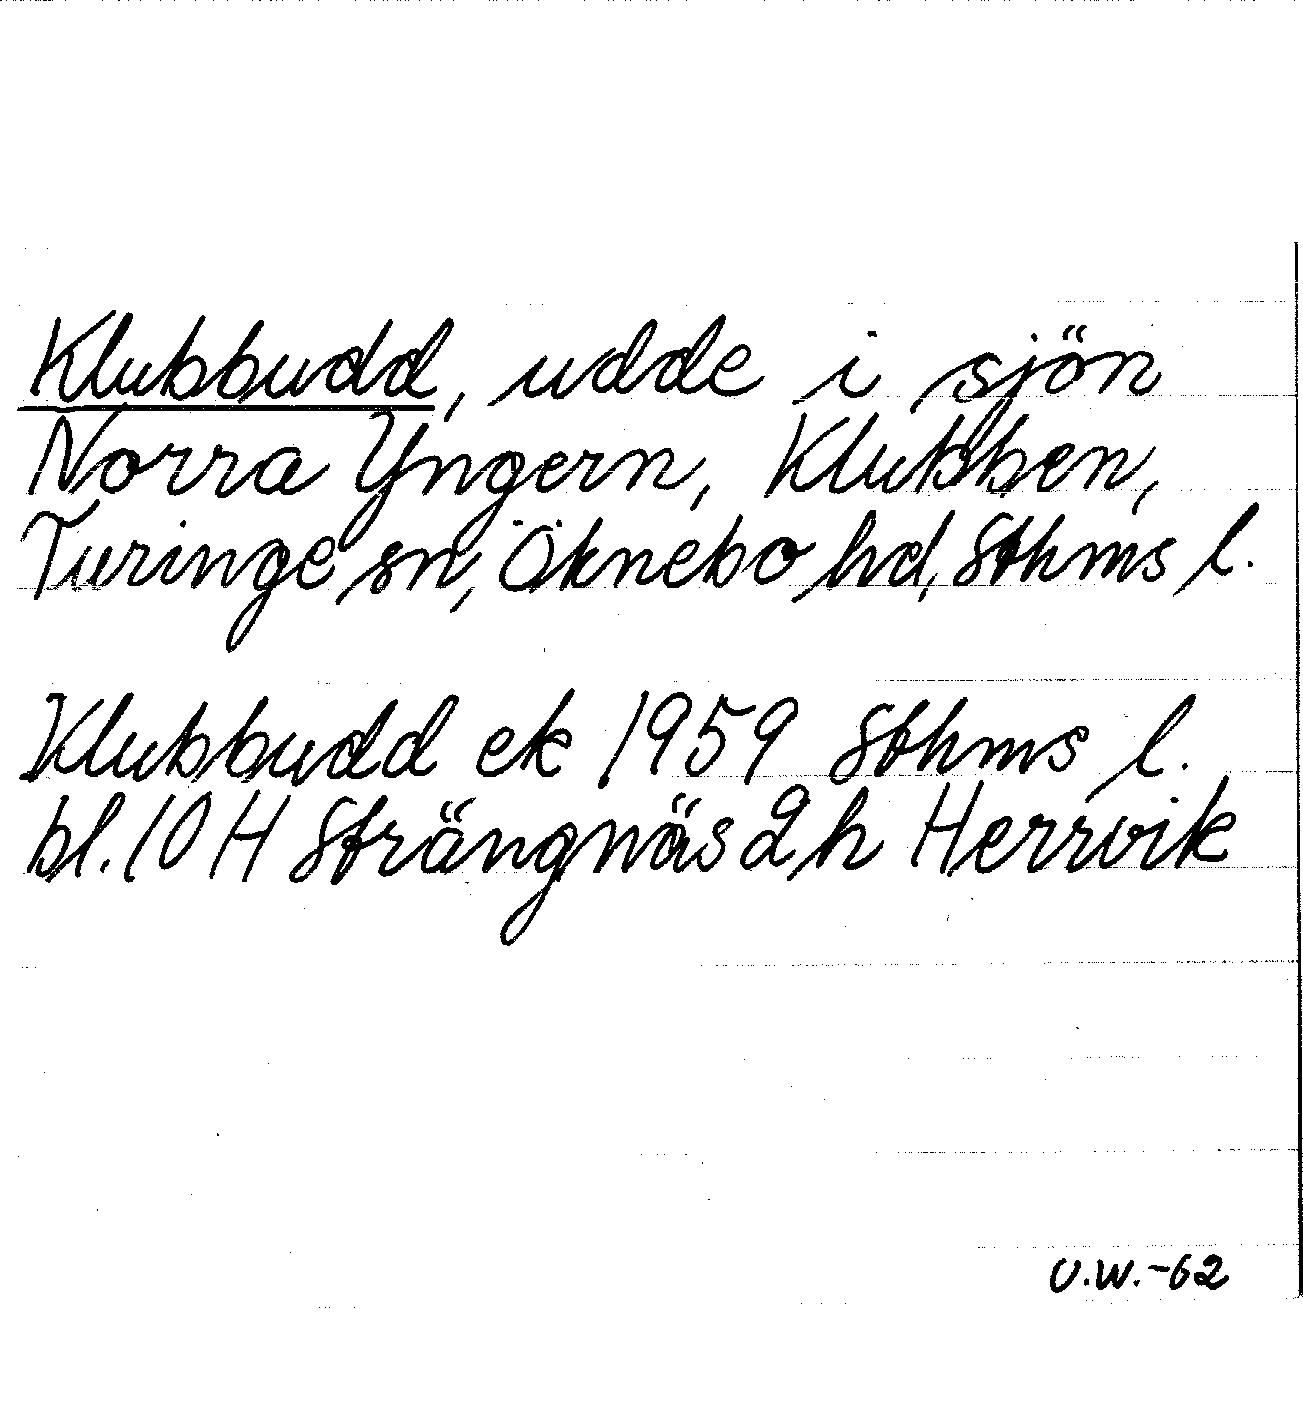 Klubbudd, udde i sjön
Norra Yngern, Klubben,
Turinge sn, Öknebo hd, Sthms l.
Klubbudd ek 1959 Sthms l.
bl. 10 H Strängnäs 2 h Herrvik
U.W.-62